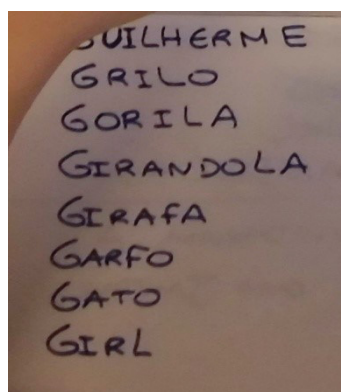 GUILHERME
GRILO
GORILA
GIRANDOLA
GIRAFA
GARFO
GATO
GIRL